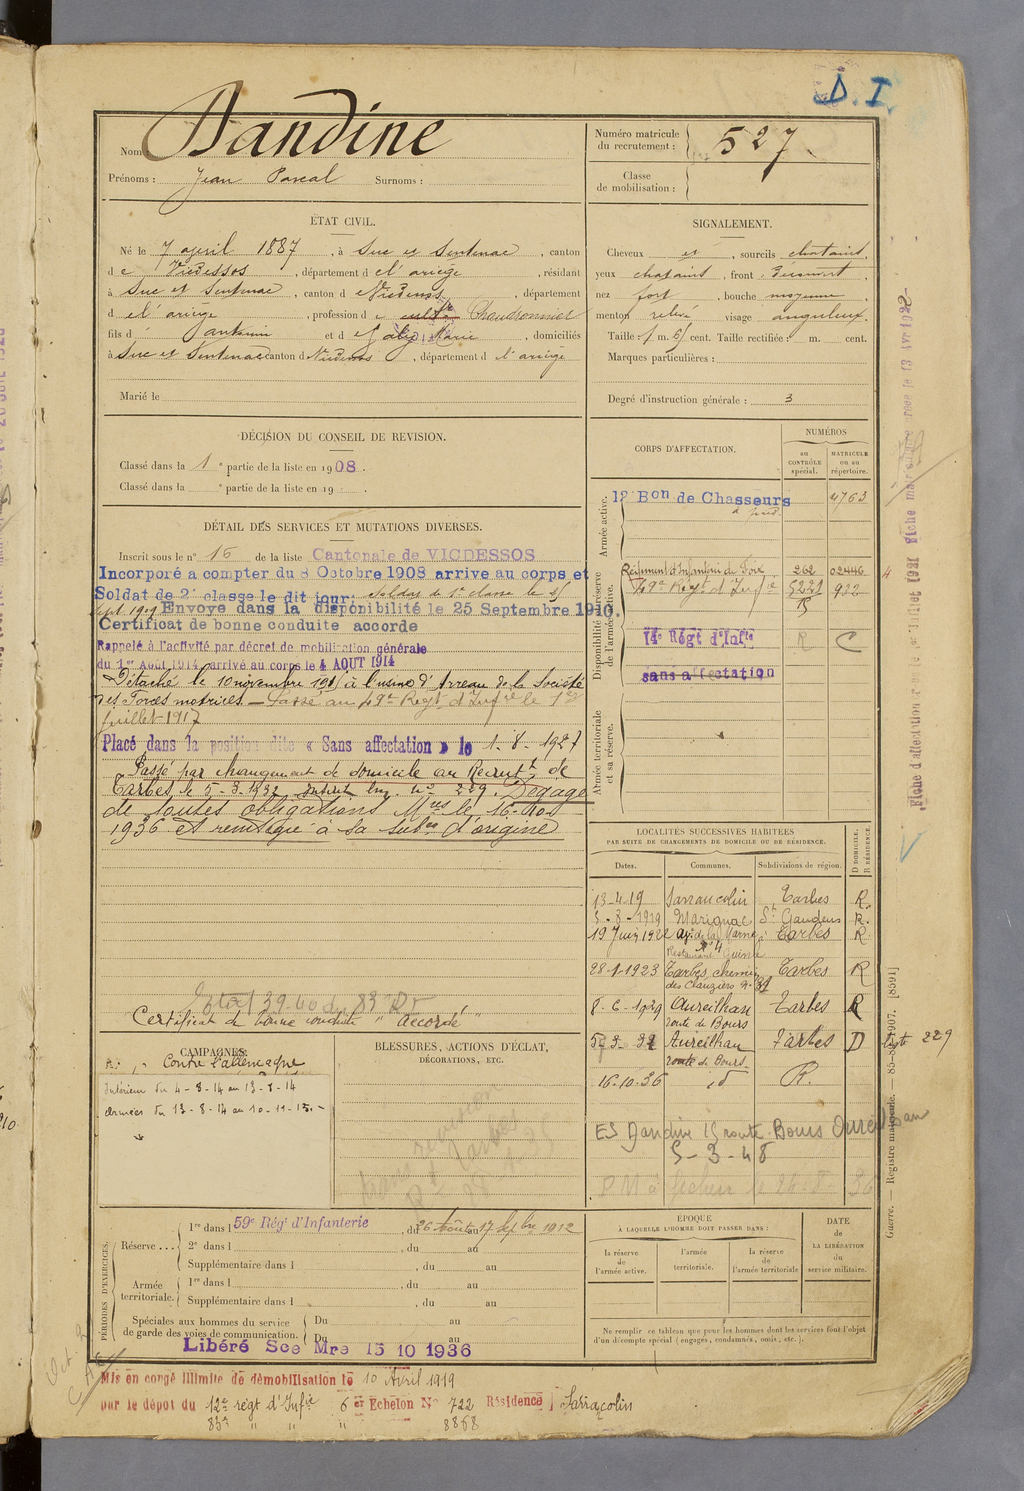 D. I.
Nom : Dandine
Prénoms : Jean Pascal Surnoms :
Numéro matricule du recrutement : 527
Classe de mobilisation :
ÉTAT CIVIL.
Né le 7 april 1887, à Suc et Sentenac, canton
de Vicdessos, département de l'ariége, résidant
à Suc et Sentenac, canton de Vicdessos, département
de l'ariége, profession de cultr Chaudronnier
fils d' antonin et de Marie, domiciliés
à Suc et Sentenac canton de Vicdessos, département de l'ariége
Marié le
SIGNALEMENT.
Cheveux et, sourcils chatains,
yeux chatains, front
nez fort, bouche moyenne,
menton relevé visage anguleux.
Taille : 1 m. 61 cent. Taille rectifiée : m. cent.
Marques particulières :
Degré d'instruction générale : 3
DÉCISION DU CONSEIL DE REVISION.
Classé dans la 1e partie de la liste en 1908.
Classé dans la e partie de la liste en 19 .
DÉTAIL DES SERVICES ET MUTATIONS DIVERSES.
Inscrit sous le n° 16 de la liste Cantonale de VICDESSOS
Incorporé a compter du 8 Octobre 1908 arrive au corps et
Soldat de 2e classe le dit jour; Soldat de 1e classe le 25
sept 1909 Envoye dans la disponibilité le 25 Septembre 1910.
Certificat de bonne conduite accorde
Rappelé à l'activité par décret de mobilisation générale
du 1er AOUT 1914 arrivé au corps le 4 AOUT 1914
Détaché le 10 novembre 1915 à l'usine d'Arreau de la Société
des Forces motrices. — Passé au 49e Regt d'Infie le 1er
juillet 1917
Placé dans la position dite « Sans affectation » le 1-8-1927
Passé par changement de domicile au Recrutt de
Tarbes le 5-3-1932 n° 229. Dégagé
de toutes obligations Mres le 16-10-
1936 et remtagié à sa subon d'origine
39-40 du 83e
Certificat de bonne conduite "accordé"
CORPS D'AFFECTATION.
NUMÉROS
au CONTRÔLE spécial.
MATRICULE ou au répertoire.
Armée active.
12 Bon de Chasseurs à pied 4763
Disponibilité et réserve de l'armée active.
Régiment d'Infanterie de Foix 262 02446
49e Regt d'Infie 5221 922
15
14e Régt d'Infie R C
sans affectation
Armée territoriale et sa réserve.
LOCALITÉS SUCCESSIVES HABITÉES
PAR SUITE DE CHANGEMENTS DE DOMICILE OU DE RÉSIDENCE.
Dates. Communes. Subdivisions de région. D DOMICILE. R RÉSIDENCE.
13-4-19 Sarrancolin Tarbes R.
5-8-1919 Marignac St Gaudens R.
19 Juin 1922 Av. de la Marne Tarbes R
Restaurant
28-1-1923 Tarbes, chemin Tarbes R
des n° 31
8-6-1929 Aureilhan Tarbes R
route de Bours
5-3-32 Aureilhan Tarbes D 229
route de Bours
16-10-36 id R.
ES Dandine 15 route Bours Aureilhan
5-3-48
CAMPAGNES.
Contre l'allemagne
Intérieur du 4-8-14 au 13-8-14
Armées du 13-8-14 au 10-11-15.-
BLESSURES, ACTIONS D'ÉCLAT,
DÉCORATIONS, ETC.
PÉRIODES D'EXERCICES.
Réserve ... 1re dans l 59e Régt d'Infanterie, du 26 Août au 17 Sepbre 1912
2e dans l , du au
Supplémentaire dans l , du au
Armée territoriale. 1re dans l , du au
Supplémentaire dans l , du au
Spéciales aux hommes du service de garde des voies de communication. Du au
Du au
Libéré Sce Mre 15 10 1936
ÉPOQUE
À LAQUELLE L'HOMME DOIT PASSER DANS :
la réserve de l'armée active. l'armée territoriale. la réserve de l'armée territoriale
DATE de LA LIBÉRATION du service militaire.
Ne remplir ce tableau que pour les hommes dont les services font l'objet
d'un décompte spécial (engagés, condamnés, omis, etc.).
Mis en congé illimité de démobilisation le 10 Avril 1919
par le dépôt du 12e régt d'Infie 6er Echelon N° 722 Résidence Sarrancolin
83e " " " 8868